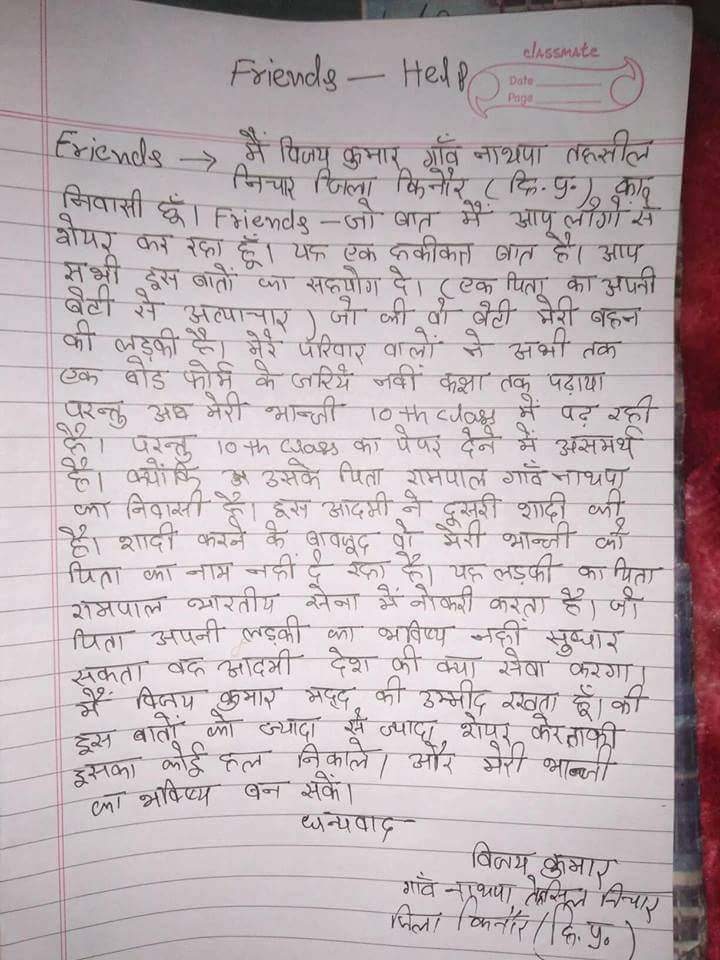 classmate
Date
Page
Friends — Help
Friends → मैं विजय कुमार गाँव नाथपा तहसील
निचार जिला किनौर (हि.प्र.) का
निवासी हूँ। Friends - जो बात मैं आप लोगों से
शेयर कर रहा हूँ। यह एक हकीकत बात है। आप
सभी इस बातों का सहयोग दे। (एक पिता का अपनी
बेटी से अत्याचार) जो की वो बेटी मेरी बहन
की लड़की है। मेरे परिवार वालों ने अभी तक
एक बोड फोर्म के जरिये नवीं कक्षा तक पढ़ाया
परन्तु अब मेरी भान्जी 10th class में पढ़ रही
है। परन्तु 10th class का पेपर देने में असमर्थ
है। क्योंकि उसके पिता रामपाल गाँव नाथपा
का निवासी है। इस आदमी ने दूसरी शादी की
है। शादी करने के बावजूद वो मेरी भान्जी को
पिता का नाम नहीं दे रहा है। यह लड़की का पिता
रामपाल भारतीय सेना में नोकरी करता है। जो
पिता अपनी लड़की का भविष्य नहीं सुधार
सकता वह आदमी देश की क्या सेवा करगा।
मैं विजय कुमार मद्द की उम्मीद रखता हूँ। की
इस बातों को ज्यादा से ज्यादा शेयर करे ताकी
इसका कोई हल निकाले। और मेरी भान्जी
का भविष्य बन सकें।
धन्यवाद-
विजय कुमार
गाँव नाथपा तेसिल निचार
जिला किनौर (हि.प्र.)